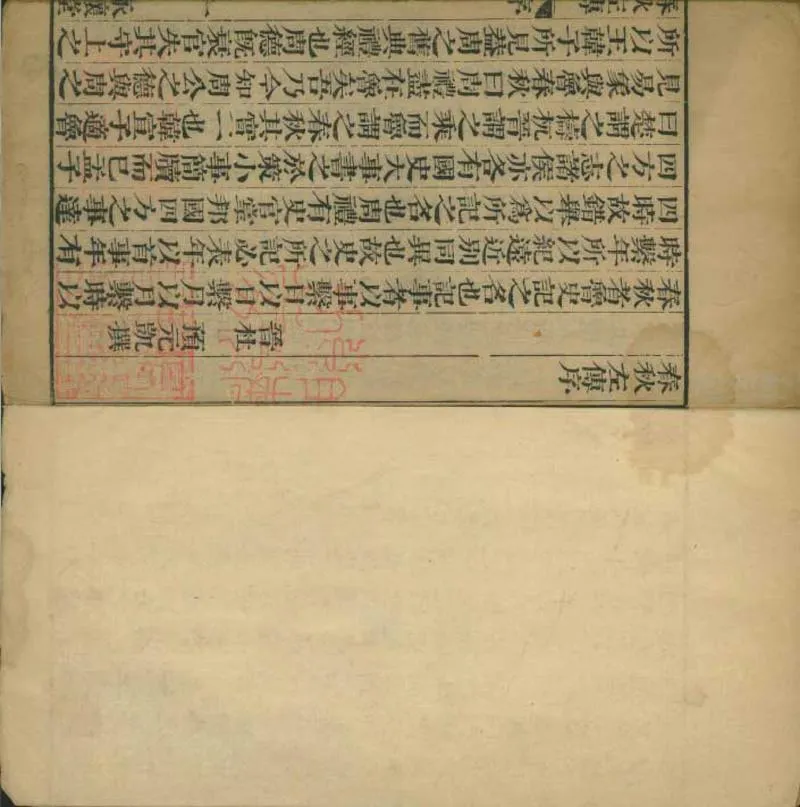 春秋左傳序
晉杜預元凱撰
春秋者魯史記之名也記事者以事繫日以日繫月以月繫時以
時繫年所以紀遠近別同異也故史之所記必表年以首事年有
四時故錯舉以為所記之名也周禮有史官掌邦國四方之事達
四方之志諸侯亦各有國史大事書之於策小事簡牘而已孟子
曰楚謂之檮杌晉謂之乘而魯謂之春秋其實一也韓宣子適魯
見易象與魯春秋曰周禮盡在魯矣吾乃今知周公之德與周之
所以王韓子所見蓋周之舊典禮經也周德既衰官失其守上之
春秋左傳 序 永懷堂